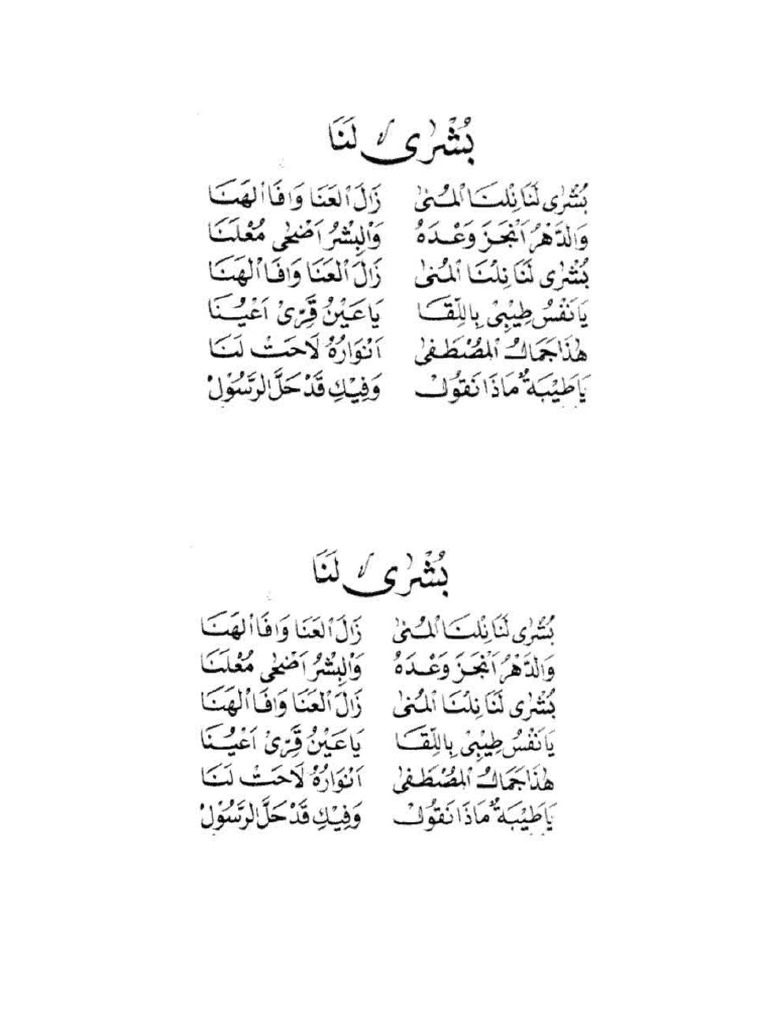 بُشْرٰى لَنَا
بُشْرٰى لَنَا نِلْنَا الْمُنٰى زَالَ الْعَنَا وَافَا الْهَنَا
وَالدَّهْرُ اَنْجَزَ وَعْدَهُ وَالْبِشْرُ اَضْحٰى مُعْلَنَا
بُشْرٰى لَنَا نِلْنَا الْمُنٰى زَالَ الْعَنَا وَافَا الْهَنَا
يَا نَفْسُ طِيْبِىْ بِاللِّقَا يَا عَيْنُ قَرِّىْ اَعْيُنَا
هٰذَا جَمَالُ الْمُصْطَفٰى اَنْوَارُهُ لَاحَتْ لَنَا
يَا طَيْبَةُ مَاذَا نَقُوْلُ وَفِيْكِ قَدْ حَلَّ الرَّسُوْلْ
بُشْرٰى لَنَا
بُشْرٰى لَنَا نِلْنَا الْمُنٰى زَالَ الْعَنَا وَافَا الْهَنَا
وَالدَّهْرُ اَنْجَزَ وَعْدَهُ وَالْبِشْرُ اَضْحٰى مُعْلَنَا
بُشْرٰى لَنَا نِلْنَا الْمُنٰى زَالَ الْعَنَا وَافَا الْهَنَا
يَا نَفْسُ طِيْبِىْ بِاللِّقَا يَا عَيْنُ قَرِّىْ اَعْيُنَا
هٰذَا جَمَالُ الْمُصْطَفٰى اَنْوَارُهُ لَاحَتْ لَنَا
يَا طَيْبَةُ مَاذَا نَقُوْلُ وَفِيْكِ قَدْ حَلَّ الرَّسُوْلْ